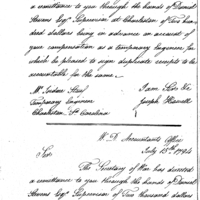 a remittance to you through the hands of Daniel
Stevens Esqr Supervisor at Charleston of Two hun
dred dollars being in advance on account of
your compensation as a temporary Engineer for
which be pleased to sign duplicate receipts to be
accountable for the same.
I am Sir &c
Joseph Howell
Temporary Engineer
Charleston So Carolina
W. D. Accountants Office
July 15th 1794
Sir
The Secretary of War has directed
a remittance to you through the hands of Daniel
Stevens Esqr Supervisor of Two thousand dollars